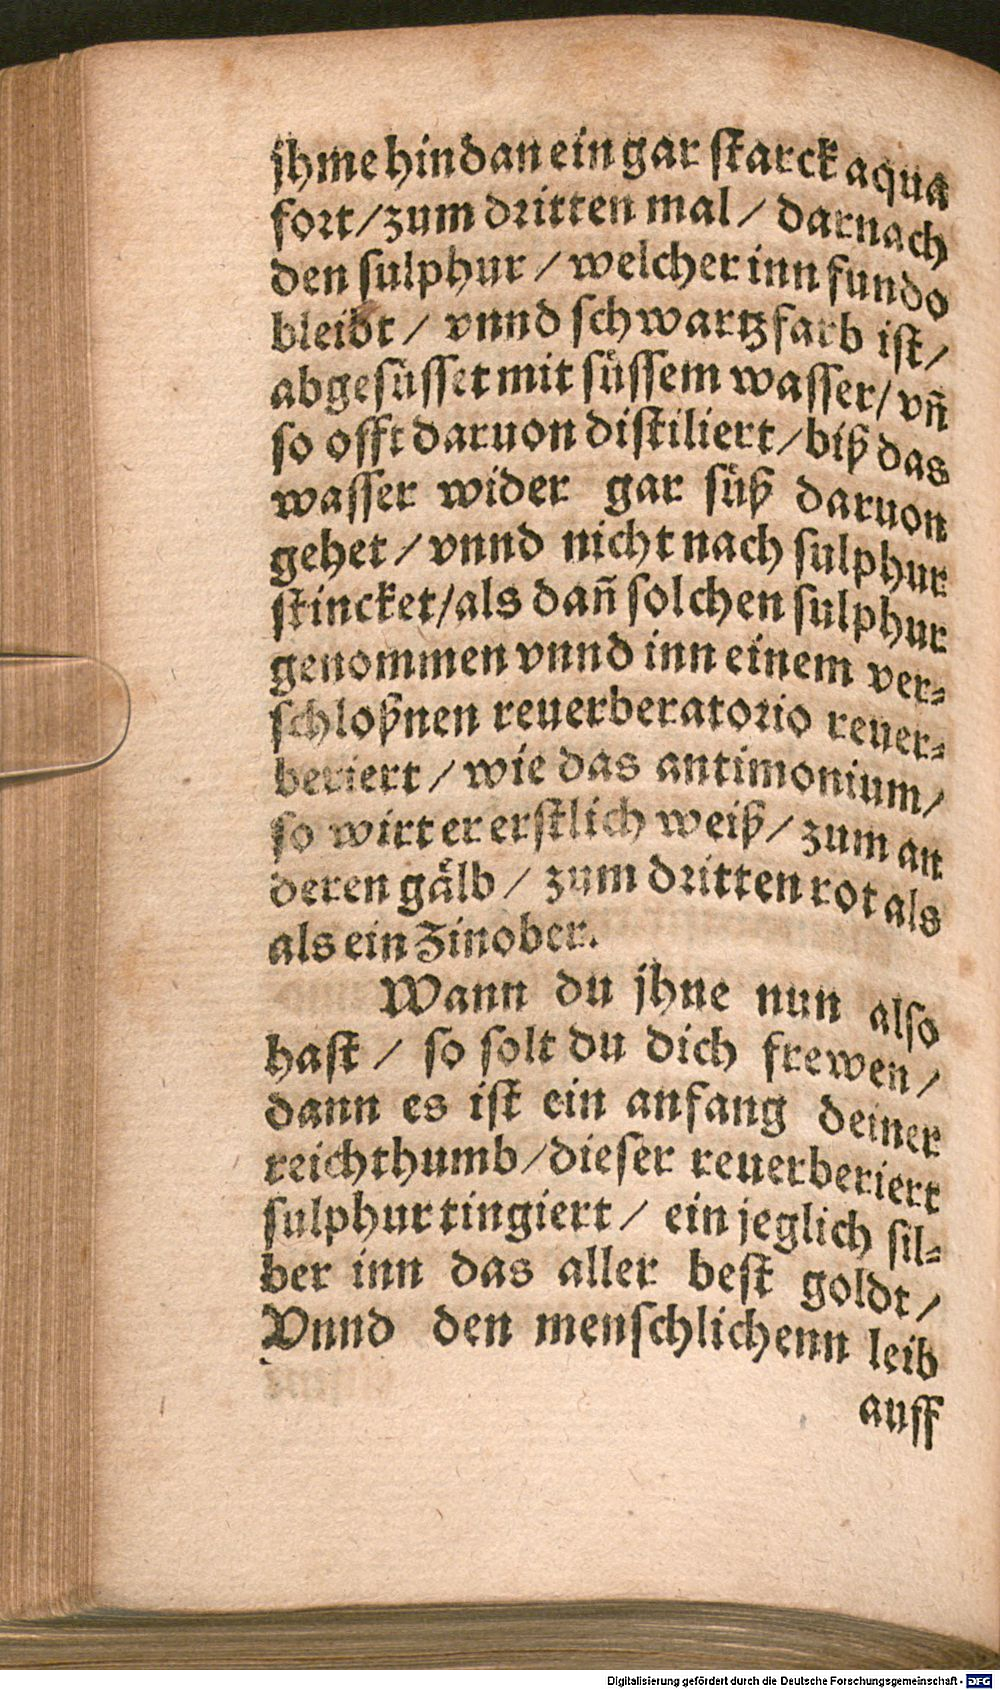 jhme hindan ein gar starck aqua
fort/zum dritten mal/ darnach
den sulphur / welcher inn fundo
bleibt / vnnd schwartzfarb ist/
abgesüsset mit süssem wasser/ vñ
so offt daruon distiliert/biß das
wasser wider gar süß daruon
gehet / vnnd nicht nach sulphur
stincket/als dañ solchen sulphur
genommen vnnd inn einem ver-
schloßnen reuerberatorio reuer-
beriert / wie das antimonium/
so wirt er erstlich weiß/ zum an
deren gälb / zum dritten rot als
als ein Zinober.
Wann du jhne nun also
hast / so solt du dich frewen/
dann es ist ein anfang deiner
reichthumb/dieser reuerberiert
sulphur tingiert / ein jeglich sil-
ber inn das aller best goldt/
Vnnd den menschlichenn leib
auff
Digitalisierung gefördert durch die Deutsche Forschungsgemeinschaft - DFG